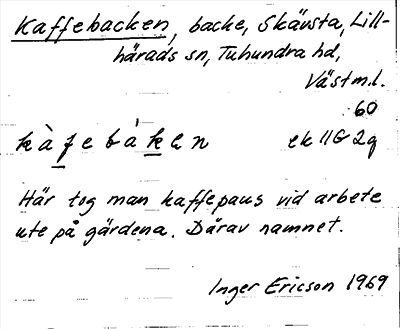 Kaffebacken, backe, Skävsta, Lill-
härads sn, Tuhundra hd,
Västml.
60
kàfebáken ek 11G 2g
Här tog man kaffepaus vid arbete
ute på gärdena. Därav namnet.
Inger Ericson 1969